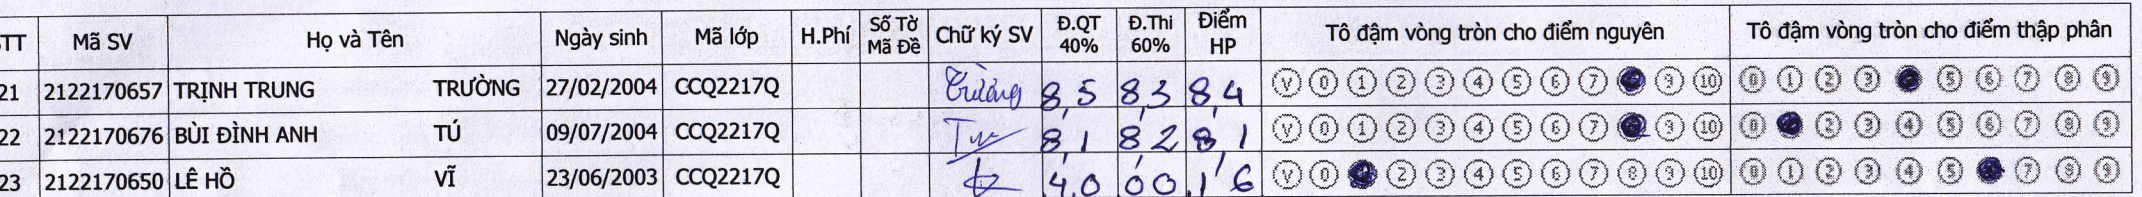 STT Mã SV Họ và Tên Ngày sinh Mã lớp H.Phí Số Tờ Mã Đề Chữ ký SV Đ.QT 40% Đ.Thi 60% Điểm HP Tô đậm vòng tròn cho điểm nguyên Tô đậm vòng tròn cho điểm thập phân
21 2122170657 TRỊNH TRUNG TRƯỜNG 27/02/2004 CCQ2217Q Trường 8,5 8,3 8,4 V 0 1 2 3 4 5 6 7 9 10 0 1 2 3 5 6 7 8 9
22 2122170676 BÙI ĐÌNH ANH TÚ 09/07/2004 CCQ2217Q Tú 8,1 8,2 8,1 V 0 1 2 3 4 5 6 7 9 10 0 2 3 4 5 6 7 8 9
23 2122170650 LÊ HỒ VĨ 23/06/2003 CCQ2217Q 4,0 0,0 1,6 V 0 2 3 4 5 6 7 8 9 10 0 1 2 3 4 5 7 8 9